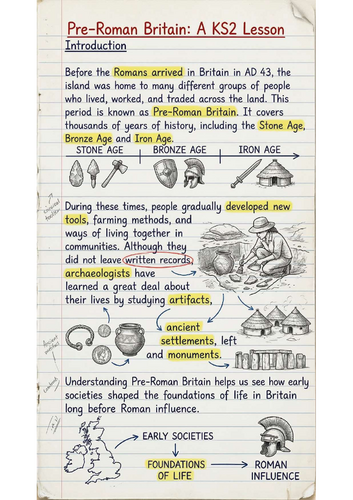 Pre-Roman Britain: A KS2 Lesson
Introduction
Before the Romans arrived in Britain in AD 43, the
island was home to many different groups of people
who lived, worked, and traded across the land. This
period is known as Pre-Roman Britain. It covers
thousands of years of history, including the Stone Age,
Bronze Age and Iron Age.
STONE AGE BRONZE AGE IRON AGE
During these times, people gradually developed new
tools, farming methods, and
ways of living together in
communities. Although they
did not leave written records,
archaeologists have
learned a great deal about
their lives by studying artifacts,
ancient
settlements, left
and monuments.
Understanding Pre-Roman Britain helps us see how early
societies shaped the foundations of life in Britain
long before Roman influence.
EARLY SOCIETIES
FOUNDATIONS
OF LIFE
ROMAN
INFLUENCE